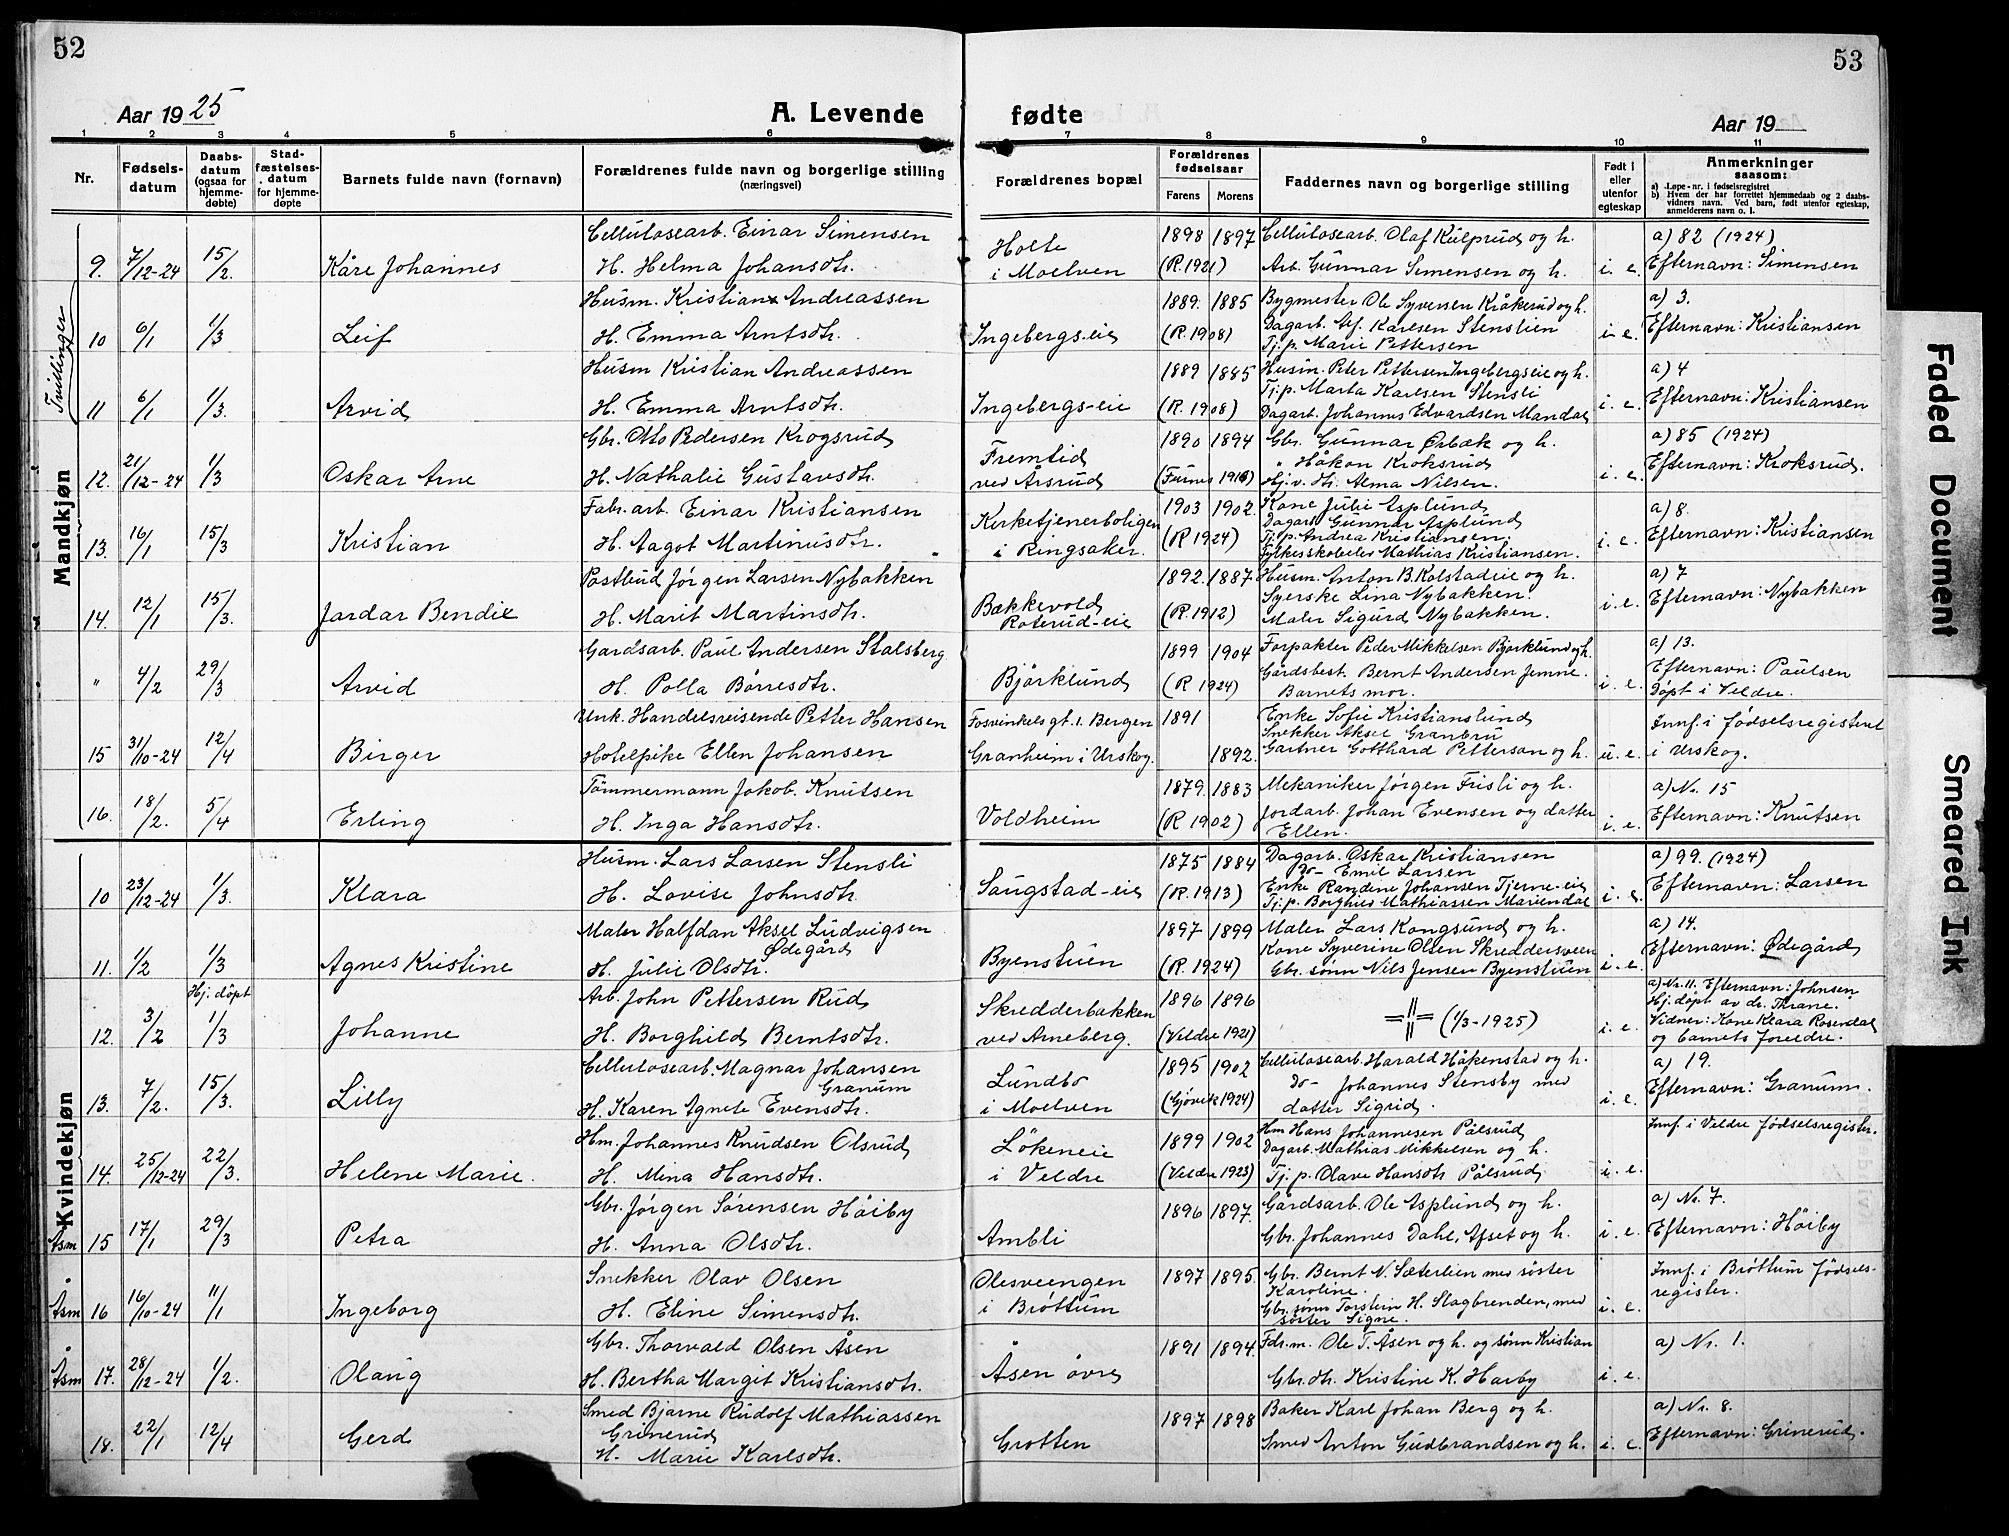 52
53
Aar 1925
A. Levende
fødte
Aar 19
1 2 3 4 5 6 7 8 9 10 11
Nr.
Fødsels-
datum
Daabs-
datum
(ogsaa for
hjemme-
døbte)
Stad-
fæstelses-
datum
for hjemme-
døpte
Barnets fulde navn (fornavn)
Forældrenes fulde navn og borgerlige stilling
(næringsvei)
Forældrenes bopæl
Forældrenes
fødselsaar
Farens Morens
Faddernes navn og borgerlige stilling
Født i
eller
utenfor
egteskap
Anmerkninger
saasom:
a) Løpe-nr. i fødselsregistret
b) Hvem der har forrettet hjemmedaab og 2 daabs-
vidners navn. Ved barn, født utenfor egteskap,
anmelderens navn o. l.
Mandkjøn
Tvillinger
9. 7/12-24 15/2. Kåre Johannes
Cellulosearb. Einar Simensen
H. Helma Johansdtr.
Holte
i Moelven
1898 1897
(R. 1921)
Cellulosearb. Olaf Kulprud og h.
Arb. Gunnar Simensen og h.
i. e.
a) 82 (1924)
Efternavn: Simensen
10 6/1 1/3 Leif
Husm. Kristian Andreassen
H. Emma Arntsdtr.
Ingebergs-eie
1889. 1885
(R. 1908)
Bygmester Ole Syversen Kråkerud og h.
Dagarb. Alf. Karlsen Stenslien
Tj. p. Marie Pettersen
i. e.
a) 3.
Efternavn: Kristiansen
11 6/1 1/3. Arvid
Husm Kristian Andreassen
H. Emma Arntsdtr.
Ingebergs-eie
1889 1885
(R. 1908)
Husm. Peter Pettersen Ingebergseie og h.
Tj. p. Marta Karlsen Stensli
Dagarb. Johannes Edvardsen Mandal
i. e.
a) 4
Efternavn: Kristiansen
12. 21/12-24 1/3 Oskar Arne
Gbr. Otto Pedersen Krogsrud
H. Nathalie Gustavsdtr.
Fremtid
ved Årsrud
1890 1894
(Furnes 1916)
Gbr. Gunnar Ørbæk og h.
" Håkon Kroksrud
Hj. v. dtr. Alma Nilsen.
i. e.
a) 85 (1924)
Efternavn: Kroksrud.
13. 16/1 15/3 Kristian
Fabr. arb. Einar Kristiansen
H. Aagot Martinusdtr.
Kirketjenerboligen
i Ringsaker.
1903 1902.
(R 1924)
Kone Julie Asplund
Dagarb. Gunnar Asplund
Tj. p. Andrea Kristiansen.
Fylkesskoleelev Mathias Kristiansen.
i. e.
a) 8.
Efternavn: Kristiansen
14. 12/1 15/3. Jardar Bendix
Postbud Jørgen Larsen Nybakken
H. Marit Martinsdtr.
Bækkevold
Roterud-eie
1892. 1887
(R. 1912)
Husm. Anton B. Kolstadeie og h.
Syerske Lina Nybakken.
Maler Sigurd Nybakken.
i. e.
a) 7
Efternavn: Nybakken
" 4/2 29/3 Arvid
Gardsarb. Paul Andersen Stalsberg
H. Polla Børresdtr.
Bjørklund
1899 1904
(R 1924)
Forpakter Peder Mikkelsen Bjørklund og h.
Gårdsbest. Bernt Andersen Jemne.
Barnets mor.
i. e.
a) 13.
Efternavn: Paulsen
Døpt i Veldre.
15 31/10-24 12/4 Birger
Unk. Handelsreisende Petter Hansen
Hotelpike Ellen Johansen
Fosvinkels gt. 1. Bergen
Granheim i Urskog.
1891
1892.
Enke Sofie Kristianslund
Snekker Aksel Granbru
Gartner Gotthard Petterson og h.
u. e.
Innf. i fødselsregisteret
i Urskog.
16. 18/2. 5/4 Erling
Tømmermann Jakob. Knutsen
H. Inga Hansdtr.
Voldheim
1879. 1883
(R 1902)
Mekaniker Jørgen Frisli og h.
Jordarb. Johan Evensen og datter
Ellen.
i. e.
a) Nr. 15
Efternavn: Knutsen
Kvindekjøn
10 23/12-24 1/3. Klara
Husm. Lars Larsen Stensli
H. Lovise Johnsdtr.
Saugstad-eie
1875 1884
(R. 1913)
Dagarb. Oskar Kristiansen
Do- Emil Larsen
Enke Randine Johansen Tjerne-eie
Tj. p. Borghild Mathiassen Mariendal
i. e.
a) 99. (1924)
Efternavn: Larsen
11. 1/2 1/3 Agnes Kristine
Maler Halfdan Aksel Ludvigsen
Ødegård
H. Julie Olsdtr.
Byenstuen
1897 1899
(R. 1924)
Maler Lars Kongsund og h.
Kone Syverine Olsen Skreddersveen
Gbr. sønn Nils Jensen Byenstuen
i. e.
a) 14.
Efternavn: Ødegård
12. 3/2 Hj. døpt 1/3 Johanne
Arb. John Pettersen Rud
H. Borghild Berntsdtr.
Skredderbakken
ved Arneberg.
1896 1896
(Veldre 1921)
=||= (1/3-1925)
i. e.
a) Nr. 11. Efternavn: Johnsen
Hj. døpt av dr. Thrane.
Vidner: Kone Klara Rosendal
og barnets foreldre.
13. 7/2. 15/3. Lilly
Cellulosearb. Magnar Johansen
Granum
H. Karen Agnete Evensdtr.
Lundbo
i Moelven
1895 1902
(Gjøvik 1924)
Cellulosearb. Harald Håkenstad og h.
do- Johannes Stensby med
datter Sigrid.
i. e.
a) 19.
Efternavn: Granum.
14. 25/12-24 22/3. Helene Marie.
Hm. Johannes Knudsen Olsrud
H. Mina Hansdtr.
Løkeneie
i Veldre
1899 1902
(Veldre 1923)
Hm Hans Johannesen Pålsrud
Dagarb. Mathias Mikkelsen og h.
Tj. p. Olave Hansdtr Pålsrud
i. e.
Innf. i Veldre fødselsregister.
Åsm 15 17/1 29/3 Petra
Gbr. Jørgen Sørensen Høiby
H. Anna Olsdtr.
Ambli
1896 1897.
Gårdsarb. Ole Asplund og h.
Gbr. Johannes Dahl, Afset og h.
i. e.
a) Nr. 7.
Efternavn: Høiby
Åsm 16 16/10-24 11/1 Ingeborg
Snekker Olav Olsen
H. Eline Simensdtr.
Olesveengen
i Brøttum
1897 1895.
Gbr. Bernt N. Sæterlien med søster
Karoline.
Gbr. sønn Torstein H. Slagbrenden, med
søster Signe.
i. e.
Innf. i Brøttum fødsels-
register.
Åsm 17. 28/12-24 1/2. Olaug
Gbr. Thorvald Olsen Åsen
H. Bertha Margit Kristiansdtr.
Åsen øvre
1891 1894.
Fdr. m. Ole T. Åsen og h. og sønn Kristian
Gbr. dtr. Kristine K. Harby
i. e.
a) Nr. 1.
18. 22/1 12/4 Gerd
Smed Bjarne Rudolf Mathiassen
Grinerud
H. Marie Karlsdtr.
Grotten
1897 1898
Baker Karl Johan Berg og h.
Smed Anton Gudbrandsen og h.
i. e.
a) Nr. 8.
Efternavn: Grinerud.
Faded Document
Smeared Ink